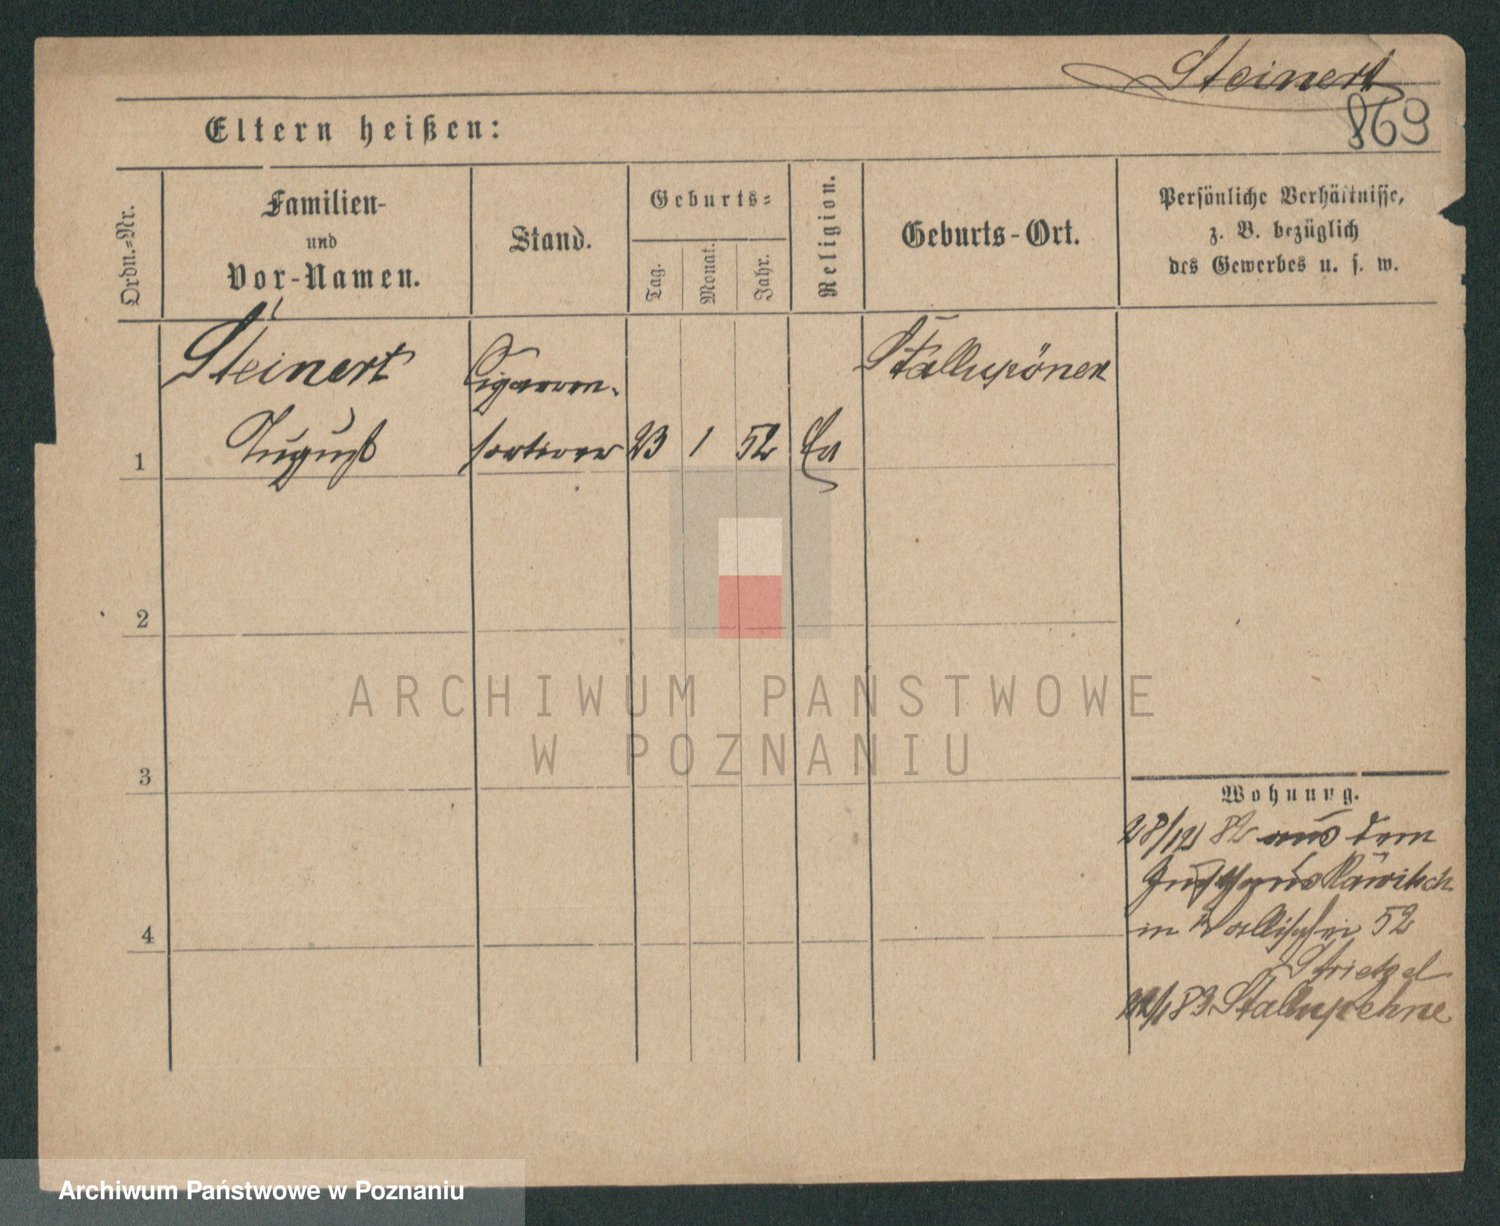 Steinert
869
Eltern heißen:
Ordn.=Nr.
Familien-
und
Vor-Namen.
Stand.
Geburts=
Tag.
Monat.
Jahr.
Religion.
Geburts-Ort.
Persönliche Verhältnisse,
z. B. bezüglich
des Gewerbes u. s. w.
Steinert
August
Cigarren-
sortirer
23
1
52
Ev
Stallupönen
1
2
3
4
Wohnung.
28/12 82 aus dem
Zuchthaus Rawitsch
in Wallischei 52
Strietzel
22/1 83 Stallupehne
ARCHIWUM PAŃSTWOWE
W POZNANIU
Archiwum Państwowe w Poznaniu